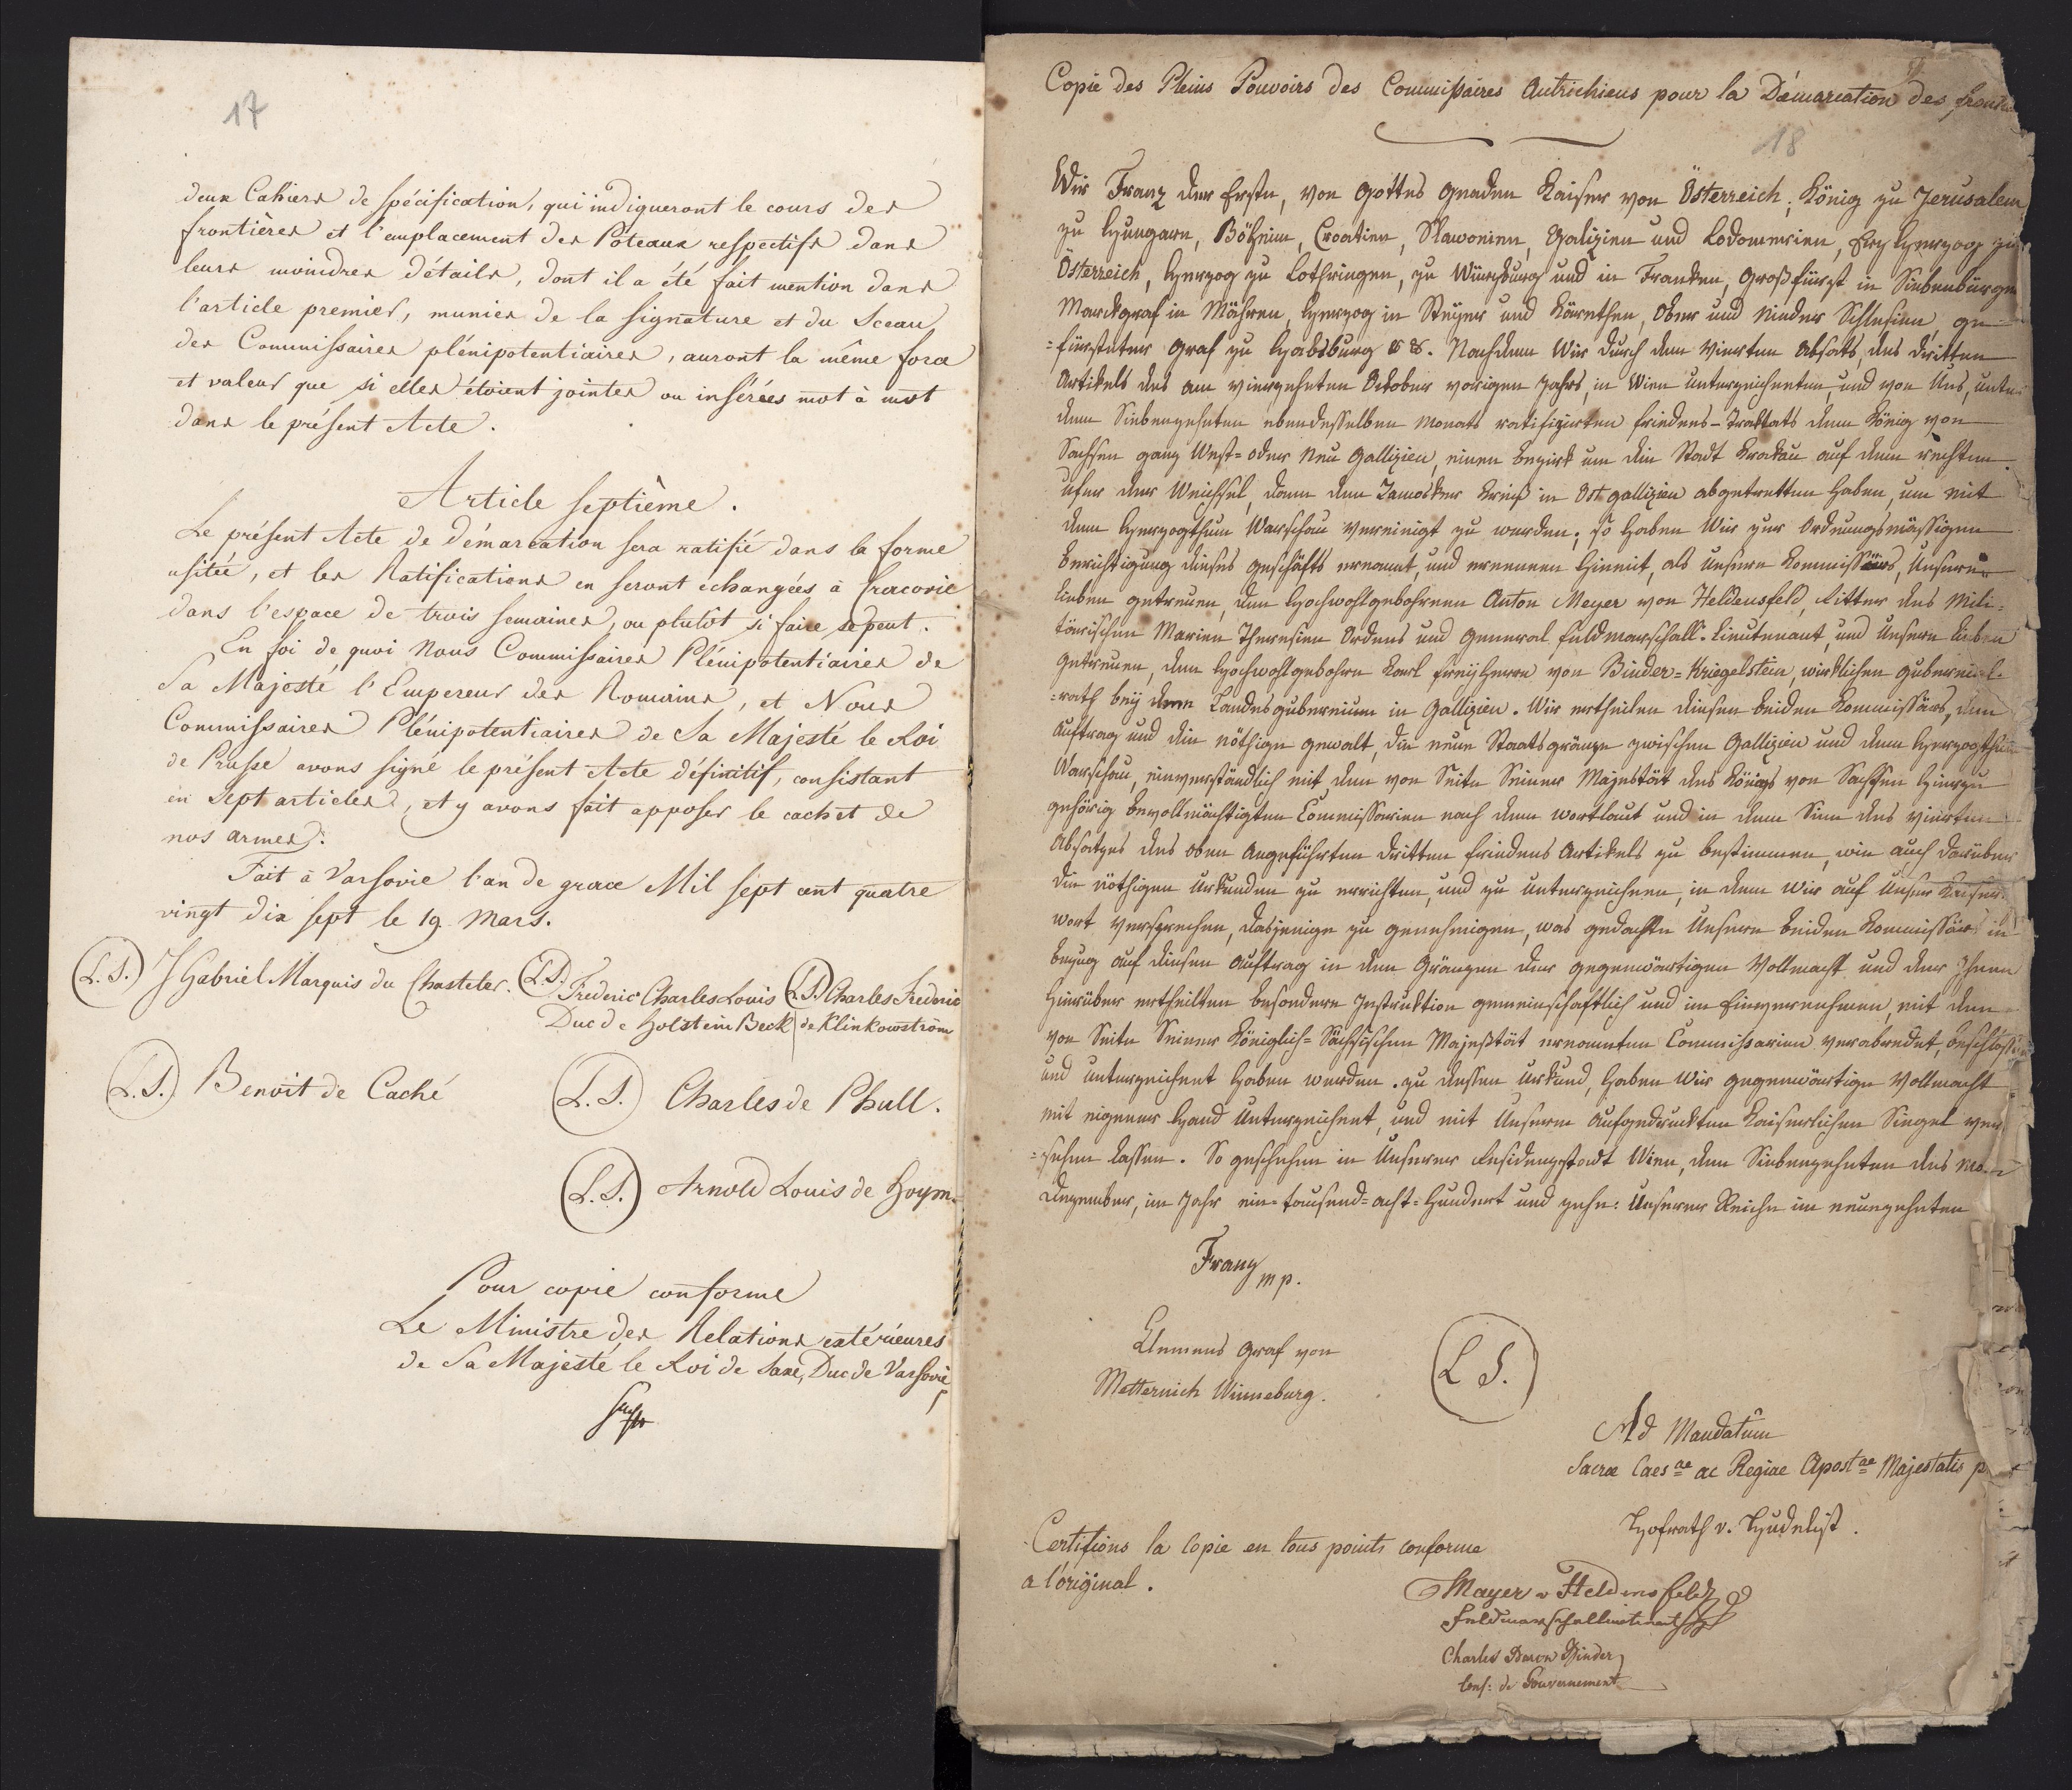 17
deux Cahiers de spécification, qui indiqueront le cours des
frontières et l'emplacement des Poteaux respectifs dans
leurs moindres détails, dont il a été fait mention dans
l'article premier, munies de la signature et du Sceau
des Commissaires plénipotentiaires, auront la même force
et valeur que si elles étoient jointes ou insérées mot à mot
dans le présent Acte.
Article septième.
Le présent Acte de démarcation sera ratifié dans la forme
usitée, et les Ratifications en seront échangées à Cracovie
dans l'espace de trois semaines, ou plutôt si faire se peut.
En foi de quoi Nous Commissaires Plénipotentiaires de
Sa Majesté l'Empereur des Romains, et Nous
Commissaires Plénipotentiaires de Sa Majesté le Roi
de Prusse avons signé le présent Acte définitif, consistant
en sept articles, et y avons fait apposer le cachet de
nos armes:
Fait à Varsovie l'an de grace Mil sept cent quatre
vingt dix sept le 19 Mars.
(L.S.) J Gabriel Marquis du Chasteler. (L.S.) Frederic Charles Louis (L.S.) Charles Frederic
Duc de Holstein Beck de Klinkowström
(L.S.) Benoit de Caché (L.S.) Charles de Phull.
(L.S.) Arnold Louis de Hoym.
Pour copie conforme
Le Ministre des Relations extérieures
de Sa Majesté le Roi de Saxe, Duc de Varsovie
Copie des Pleins Pouvoirs des Commissaires Autrichiens pour la Démarcation des
18
Wir Franz der Erste, von Gottes Gnaden Kaiser von Österreich; König zu Jerusalem
zu Hungarn, Böheim, Croatien, Slawonien, Galizien und Lodomerien, Erzherzog zu
Österreich, Herzog zu Lothringen, zu Würzburg und in Franken, Großfürst in Siebenbürgen
Markgraf in Mähren, Herzog in Steyer und Kärnthen, Ober und Nieder Schlesien, ge-
=fürsteter Graf zu Habsburg &&. Nachdem Wir durch den vierten Absatz, des dritten
Artikels des am vierzehnten Oktober vorigen Jahrs, in Wien unterzeichneten, und von Uns, unter
dem Siebenzehnten ebendesselben Monats ratifizirten Friedens-Traktats dem König von
Sachsen ganz West= oder Neu Gallizien, einen Bezirk um die Stadt Krakau auf dem rechten
Ufer der Weichsel, dann den Zamosker Kreiß in Ost gallizien abgetretten haben, um mit
dem Herzogthum Warschau vereinigt zu werden; so haben Wir zur Ordnungsmässigen
Berichtigung dieses Geschäfts ernannt, und ernennen hiemit, als Unsere Kommissärs, Unsern
lieben getreuen, den Hochwohlgebohrnen Anton Meyer von Heldensfeld, Ritter des Mili-
tärischen Marien Theresien Ordens und General Feldmarschall-Lieutenant, und Unsern lieben
getreuen, den Hochwohlgebohrn Karl Freyherrn von Binder=Kriegelstein, wirklichen Gubernial-
=rath bey dem Landesgubernium in Gallizien. Wir ertheilen diesen beiden Kommissärs, den
Auftrag und die nöthige Gewalt, die neue Staatsgränze zwischen Gallizien und dem Herzogthum
Warschau, einverständlich mit den von Seite Seiner Majestät des Königs von Sachsen hierzu
gehörig bevollmächtigten Commissarien nach dem Wortlaut und in dem Sinn des vierten
Absatzes des oben angeführten dritten Friedens Artikels zu bestimmen, wie auch darüber
die nöthigen Urkunden zu errichten, und zu unterzeichnen, in dem Wir auf Unser Kaiser-
wort versprechen, dasjenige zu genehmigen, was gedachte Unsere beiden Kommissärs in
Bezug auf diesen Auftrag in den Gränzen der gegenwärtigen Vollmacht und der Ihnen
hierüber ertheilten besondern Instruktion gemeinschaftlich und im Einvernehmen, mit den
von Seite Seiner Königlich=Sächsischen Majestät ernannten Commissarien verabredet, beschlossen
und unterzeichnet haben werden. Zu dessen Urkund, haben Wir gegenwärtige Vollmacht
mit eigener Hand Unterzeichnet, und mit Unserm aufgedruckten Kaiserlichen Siegel ver
=sehen lassen. So geschehen in Unserer Residenzstadt Wien, den Siebenzehnten des
Dezember, im Jahr ein=tausend=acht=hundert und zehn: Unserer Reiche im neunzehnten
Franz
mp.
Clemens Graf von
Metternich Winneburg.
(L S.)
Ad Mandatum
Sacrae Caesae ac Regiae Apostae Majestatis
Hofrath v. Hudelist.
Certifions la Copie en tous points conforme
a l'original.
Mayer v Heldensfeld
Feldmarschallieutenant
Charles Baron Binder
Cons: de Gouvernement